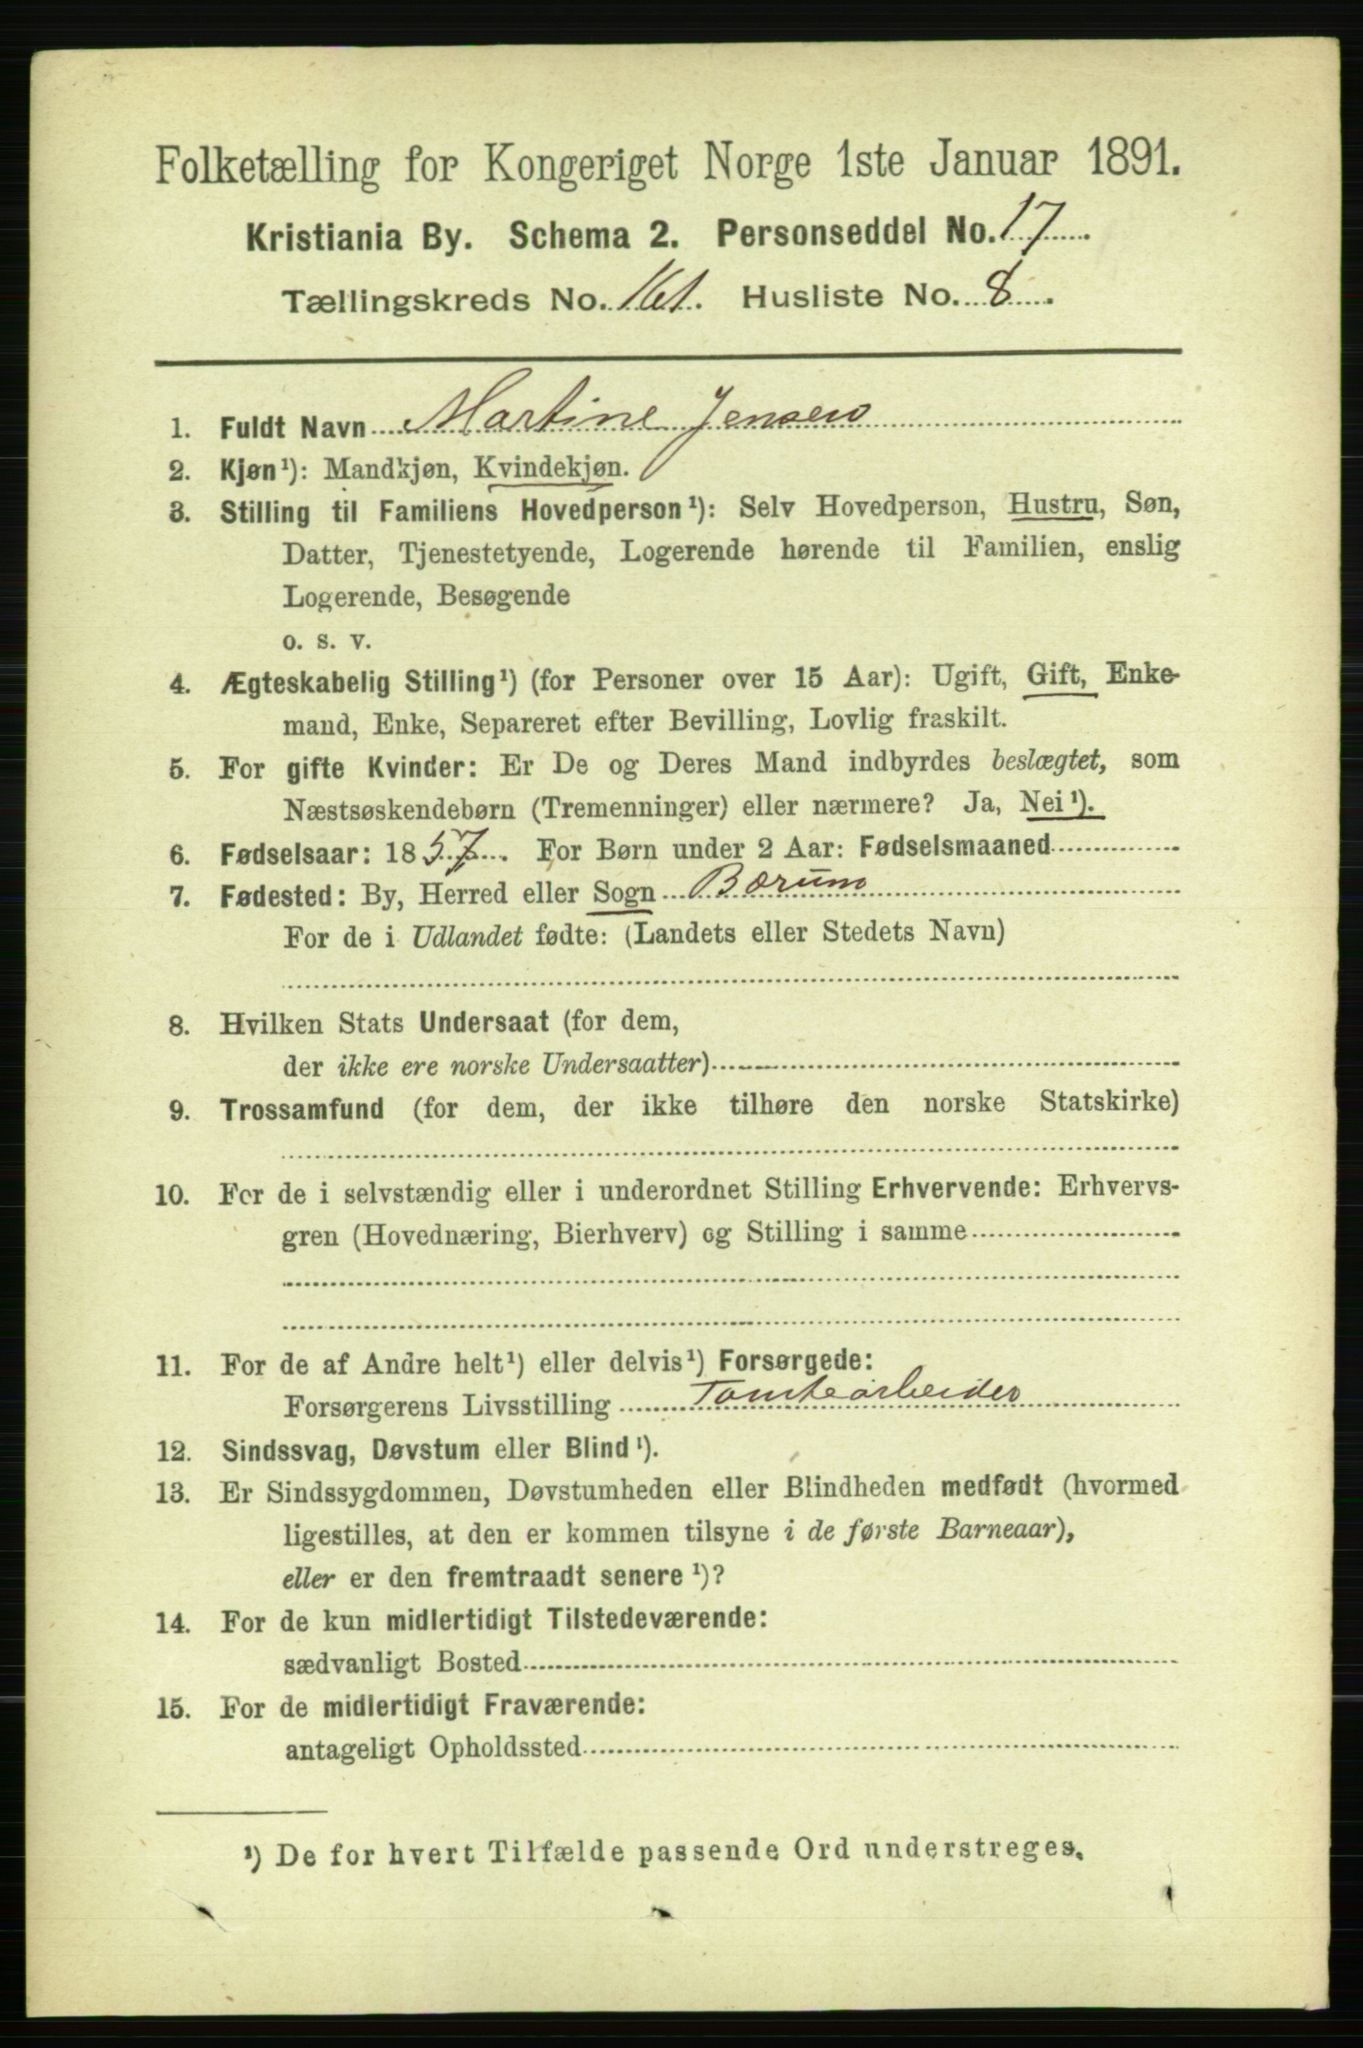 Folketælling for Kongeriget Norge 1ste Januar 1891.
Kristiania By. Schema 2. Personseddel No. 17
Tællingskreds No. 161. Husliste No. 8
1. Fuldt Navn Martine Jensen
2. Kjøn¹): Mandkjøn, Kvindekjøn.
3. Stilling til Familiens Hovedperson¹): Selv Hovedperson, Hustru, Søn,
Datter, Tjenestetyende, Logerende hørende til Familien, enslig
Logerende, Besøgende
o. s. v.
4. Ægteskabelig Stilling¹) (for Personer over 15 Aar): Ugift, Gift, Enke-
mand, Enke, Separeret efter Bevilling, Lovlig fraskilt.
5. For gifte Kvinder: Er De og Deres Mand indbyrdes beslægtet, som
Næstsøskendebørn (Tremenninger) eller nærmere? Ja, Nei¹).
6. Fødselsaar: 1857. For Børn under 2 Aar: Fødselsmaaned
7. Fødested: By, Herred eller Sogn Bærum
For de i Udlandet fødte: (Landets eller Stedets Navn)
8. Hvilken Stats Undersaat (for dem,
der ikke ere norske Undersaatter)
9. Trossamfund (for dem, der ikke tilhøre den norske Statskirke)
10. For de i selvstændig eller i underordnet Stilling Erhvervende: Erhvervs-
gren (Hovednæring, Bierhverv) og Stilling i samme
11. For de af Andre helt¹) eller delvis¹) Forsørgede:
Forsørgerens Livsstilling Tomtearbeider
12. Sindssvag, Døvstum eller Blind¹).
13. Er Sindssygdommen, Døvstumheden eller Blindheden medfødt (hvormed
ligestilles, at den er kommen tilsyne i de første Barneaar),
eller er den fremtraadt senere¹)?
14. For de kun midlertidigt Tilstedeværende:
sædvanligt Bosted
15. For de midlertidigt Fraværende:
antageligt Opholdssted
¹) De for hvert Tilfælde passende Ord understreges.